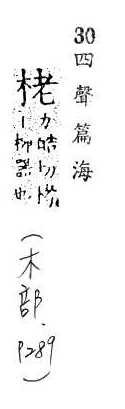 30四聲篇海
栳力晧切栲
丨柳器也
(木部. P289)